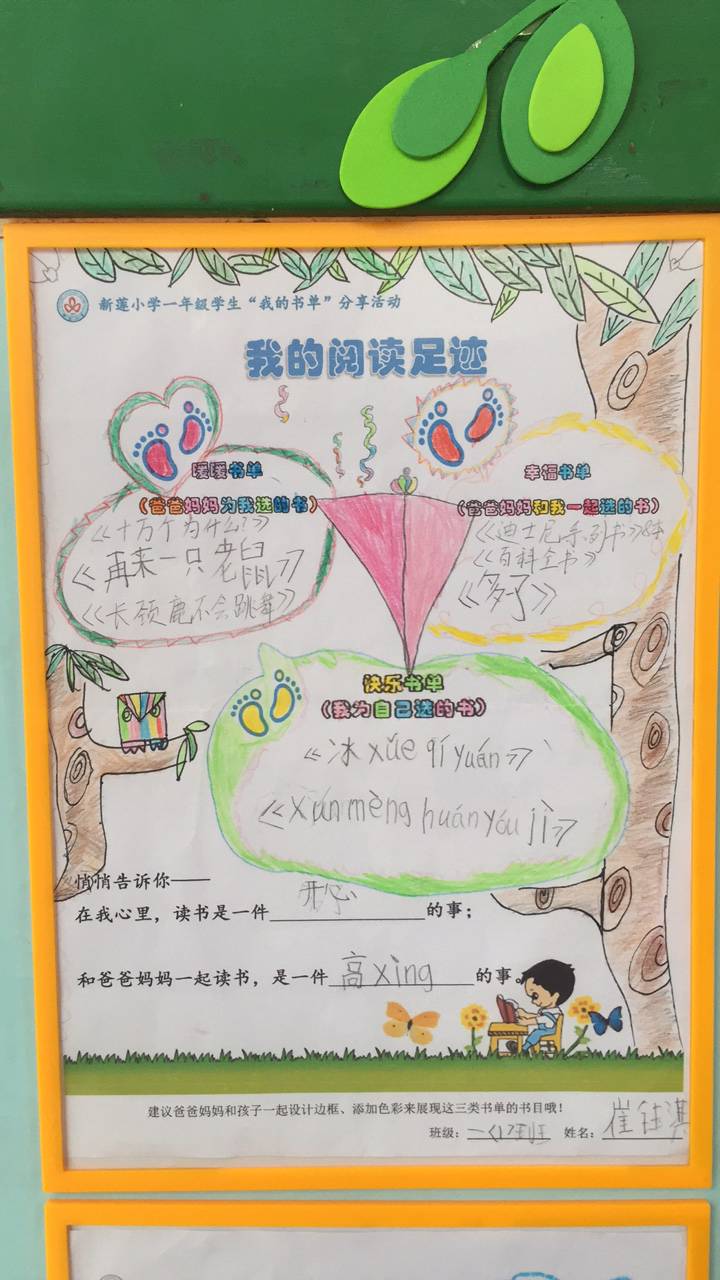 新莲小学一年级学生“我的书单”分享活动
我的阅读足迹
暖暖书单
(爸爸妈妈为我选的书)
《十万个为什么?》
《再来一只老鼠》
《长颈鹿不会跳舞》
幸福书单
(爸爸妈妈和我一起选的书)
《迪士尼系列书》8本
《百科全书》
快乐书单
(我为自己选的书)
《冰xǔe qí yuán》
《xún mèng huán yóu jì》
悄悄告诉你——
在我心里，读书是一件开心的事；
和爸爸妈妈一起读书，是一件高xìng的事。
建议爸爸妈妈和孩子一起设计边框、添加色彩来展现这三类书单的书目哦！
班级： 姓名：崔